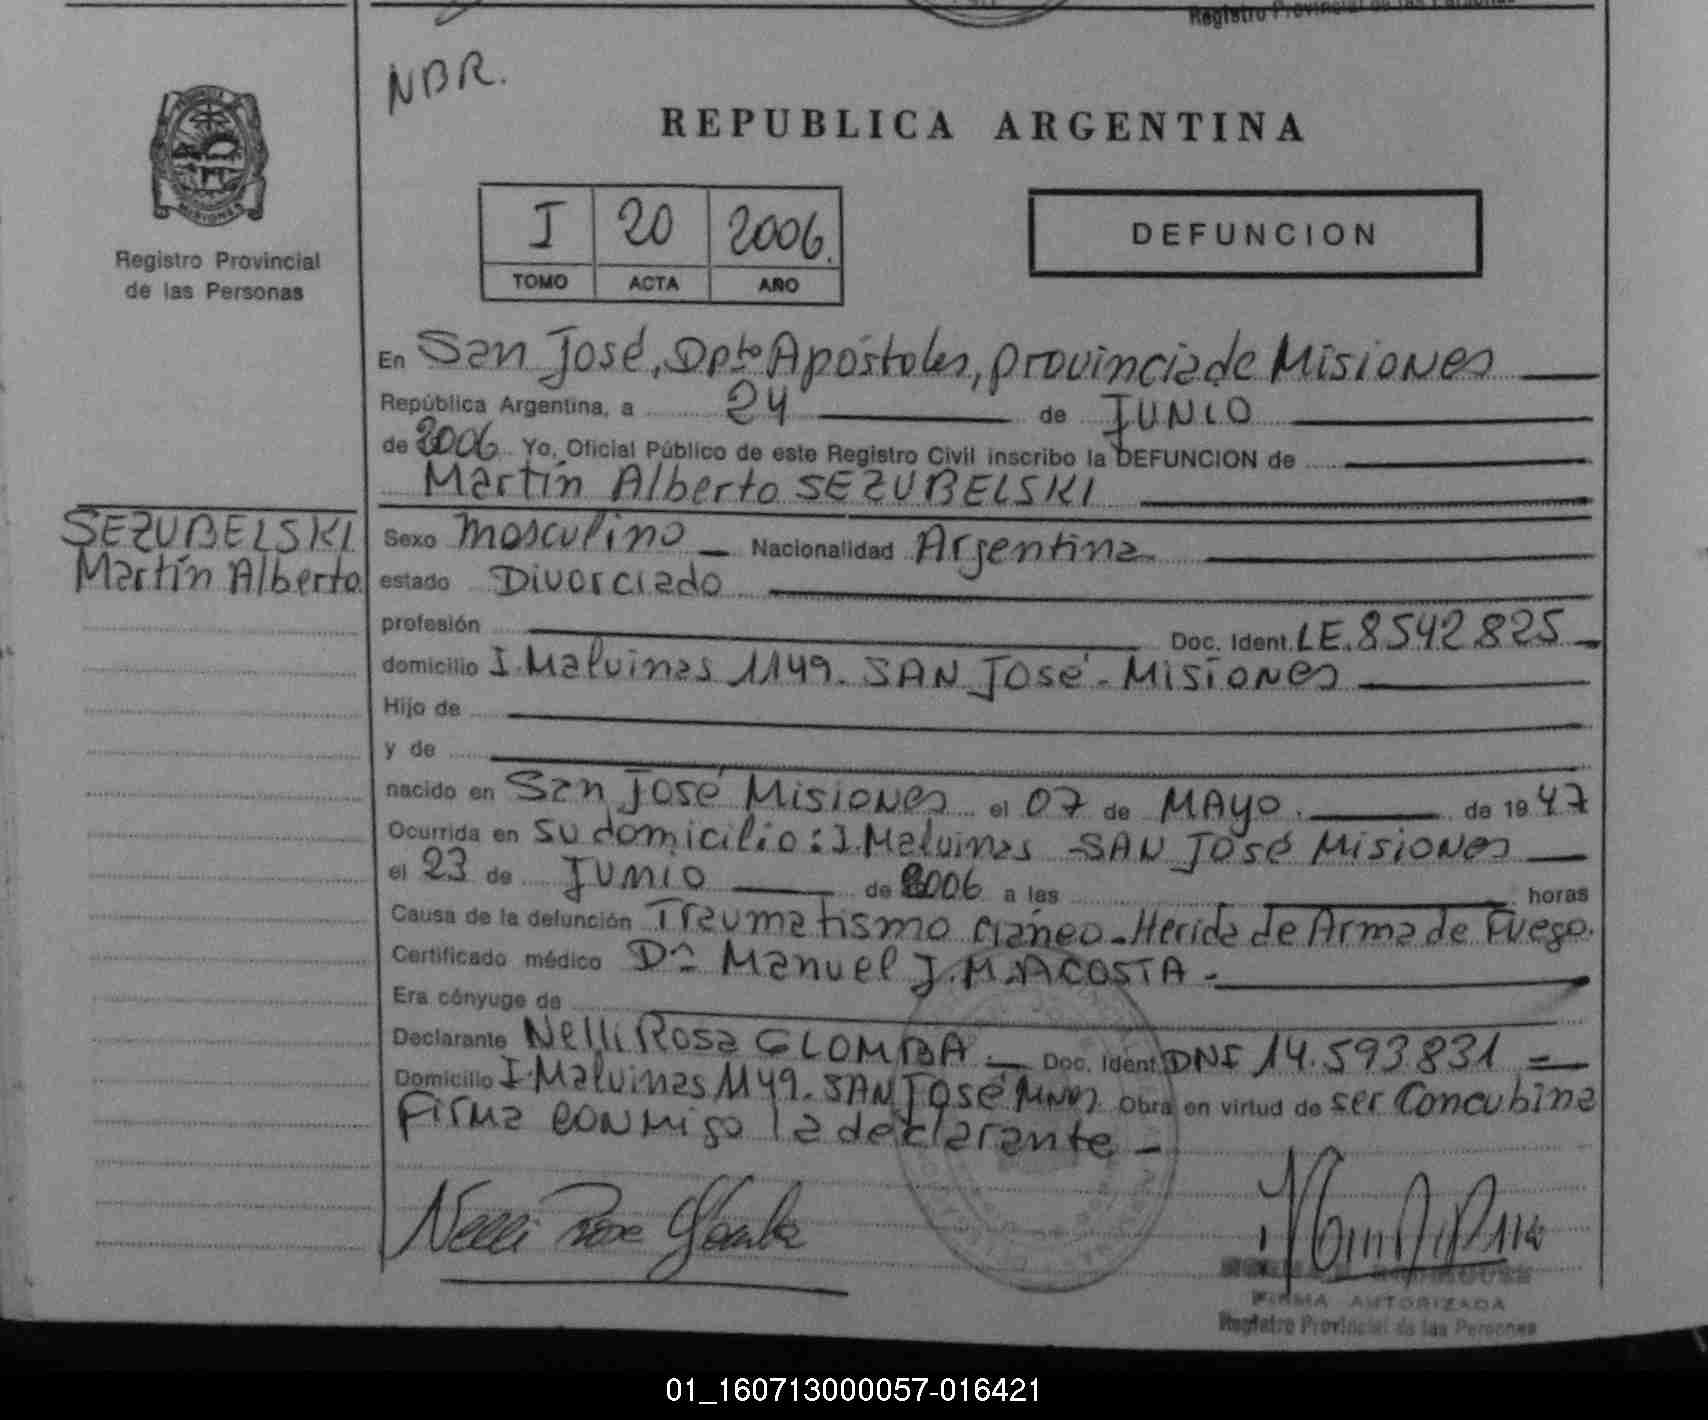 Registro Provincial de las Personas
NBR.
REPUBLICA ARGENTINA
MISIONES
Registro Provincial
de las Personas
I 20 2006.
TOMO ACTA AÑO
DEFUNCION
En San José, Dpto Apóstoles, provincia de Misiones
República Argentina, a 24 de JUNIO
de 2006 Yo, Oficial Público de este Registro Civil inscribo la DEFUNCION de
Martín Alberto SEZUBELSKI
SEZUBELSKI
Martín Alberto
Sexo masculino Nacionalidad Argentina
estado Divorciado
profesión Doc. Ident. LE. 8542825
domicilio I. Malvinas 1149. SAN José - Misiones
Hijo de
y de
nacido en San José Misiones el 07 de MAYO. de 1947
Ocurrida en su domicilio: I. Malvinas SAN José Misiones
el 23 de Junio de 2006 a las horas
Causa de la defunción Traumatismo cráneo - Herida de Arma de Fuego.
Certificado médico Dr Manuel J. M. ACOSTA -
Era cónyuge de
Declarante Nelli Rosa GLOMBA. Doc. Ident. DNI 14.593.831 =
Domicilio I. Malvinas 1149. SAN José Mnes Obra en virtud de ser Concubina
Firma conmigo la declarante -
Nelli Rosa Glomba
FIRMA AUTORIZADA
Registro Provincial de las Personas
01_160713000057-016421